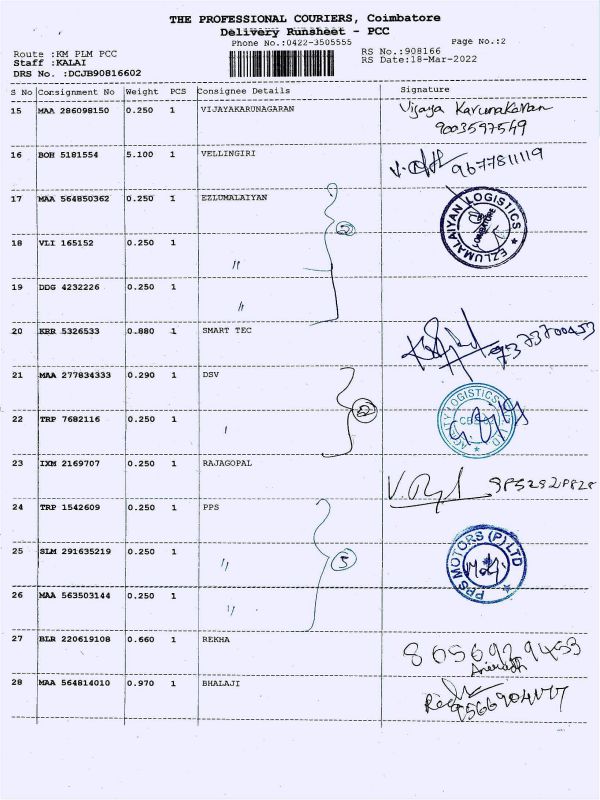 THE PROFESSIONAL COURIERS, Coimbatore
Delivery Runsheet - PCC
Phone No.:0422-3505555 Page No.:2
Route :KM PLM PCC RS No.:908166
Staff :KALAI RS Date:18-Mar-2022
DRS No. :DCJB90816602
S No Consignment No Weight PCS Consignee Details Signature
15 MAA 286098150 0.250 1 VIJAYAKARUNAGARAN Vijaya Karunakaran
9003597549
16 BOH 5181554 5.100 1 VELLINGIRI 9677811119
17 MAA 564850362 0.250 1 EZLUMALAIYAN EZLUMALAIYAN LOGISTICS
COIMBATORE
18 VLI 165152 0.250 1 "
19 DDG 4232226 0.250 1 "
20 KRR 5326533 0.880 1 SMART TEC
21 MAA 277834333 0.290 1 DSV
22 TRP 7682116 0.250 1 "
23 IXM 2169707 0.250 1 RAJAGOPAL
24 TRP 1542609 0.250 1 PPS 3 PPS MOTORS (P) LTD
25 SLM 291635219 0.250 1 "
26 MAA 563503144 0.250 1 "
27 BLR 220619108 0.660 1 REKHA 8056929453
28 MAA 564814010 0.970 1 BHALAJI